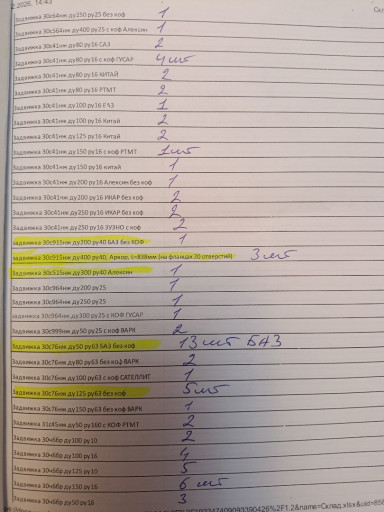 2.2026, 14:43
Задвижка 30с64нж ду150 ру25 без коф 1
Задвижка 30с564нж ду400 ру25 с коф Алексин 1
Задвижка 30с41нж ду80 ру16 САЗ 2
Задвижка 30с41нж ду80 ру16 с коф ГУСАР 4шт
Задвижка 30с41нж ду80 ру16 КИТАЙ 2
Задвижка 30с41нж ду80 ру16 РТМТ 2
Задвижка 30с41нж ду100 ру16 БАЗ 1
Задвижка 30с41нж ду100 ру16 Китай 2
Задвижка 30с41нж ду125 ру16 Китай 2
Задвижка 30с41нж ду150 ру16 с коф РТМТ 1шт
Задвижка 30с41нж ду150 ру16 китай 1
Задвижка 30с41нж ду200 ру16 Алексин без коф 1
Задвижка 30с41нж ду200 ру16 ИКАР без коф 2
Задвижка 30с41нж ду250 ру16 ИКАР без коф 2
Задвижка 30с41нж ду250 ру16 ЗУЭНО с коф 2
задвижка 30с915нж ду200 ру40 БАЗ без КОФ 1
задвижка 30с915нж ду400 ру40, Аркор, L=838мм (на фланцах 20 отверстий) 3шт
Задвижка 30с515нж ду300 ру40 Алексин 1
Задвижка 30с964нж ду200 ру25 1
Задвижка 30с964нж ду250 ру25 1
задвижка 30с964нж ду300 ру25 с КОФ ГУСАР 1
Задвижка 30с999нж ду50 ру25 с коф ВАРК 2
Задвижка 30с76нж ду50 ру63 БАЗ без коф 13шт БАЗ
Задвижка 30с76нж ду80 ру63 без коф ВАРК 2
Задвижка 30с76нж ду100 ру63 с коф САТЕЛЛИТ 1
Задвижка 30с76нж ду125 ру63 без коф 5шт
Задвижка 30с76нж ду150 ру63 без коф ВАРК 1
Задвижка 31с45нж ду50 ру160 с КОФ РТМТ 2
Задвижка 30ч6бр ду100 ру10 2
Задвижка 30ч6бр ду100 ру16 4
Задвижка 30ч6бр ду125 ру10 5
Задвижка 30ч6бр ду150 ру16 6шт
Задвижка 30ч6бр ду50 ру16 3